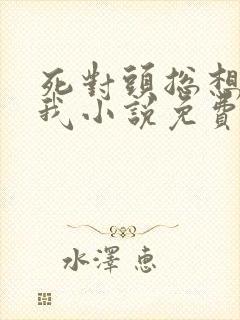 死對頭總想
我小說免費
水澤惠